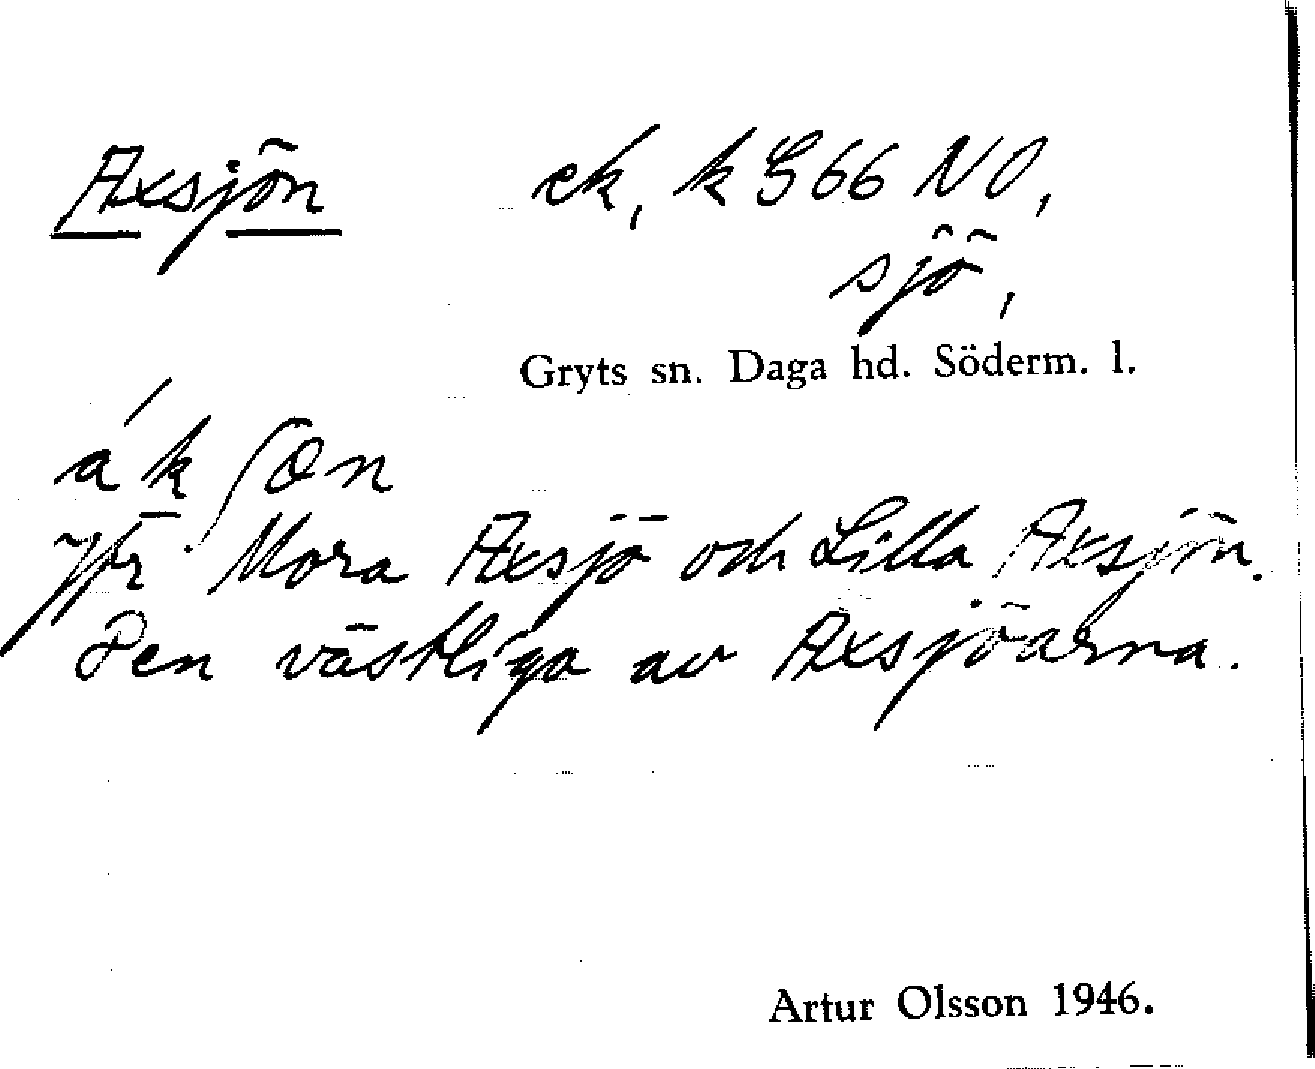 Axsjön ek, k G 66 NO,
sjö,
Gryts sn. Daga hd. Söderm. l.
ákʃön
Jfr Mora Axsjö och Lilla Axsjön.
Den västliga av Axsjöarna.
Artur Olsson 1946.